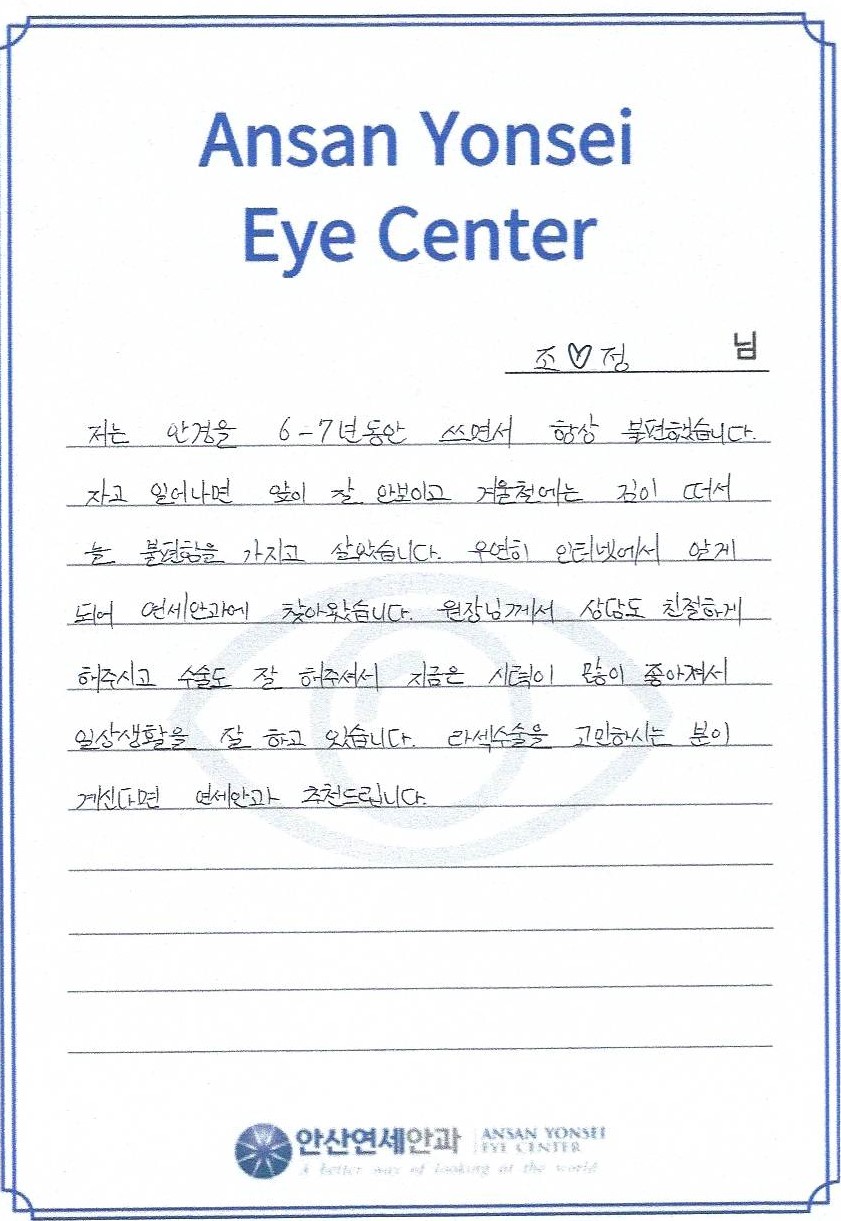 Ansan Yonsei
Eye Center
조♡정 님
저는 안경을 6-7년동안 쓰면서 항상 불편했습니다.
자고 일어나면 앞이 잘 안보이고 겨울철에는 김이 떠서
늘 불편함을 가지고 살았습니다. 우연히 인터넷에서 알게
되어 연세안과에 찾아왔습니다. 원장님께서 상담도 친절하게
해주시고 수술도 잘 해주셔서 지금은 시력이 많이 좋아져서
일상생활을 잘 하고 있습니다. 라섹수술을 고민하시는 분이
계신다면 연세안과 추천드립니다.
안산연세안과 ANSAN YONSEI
EYE CENTER
A better way of looking at the world